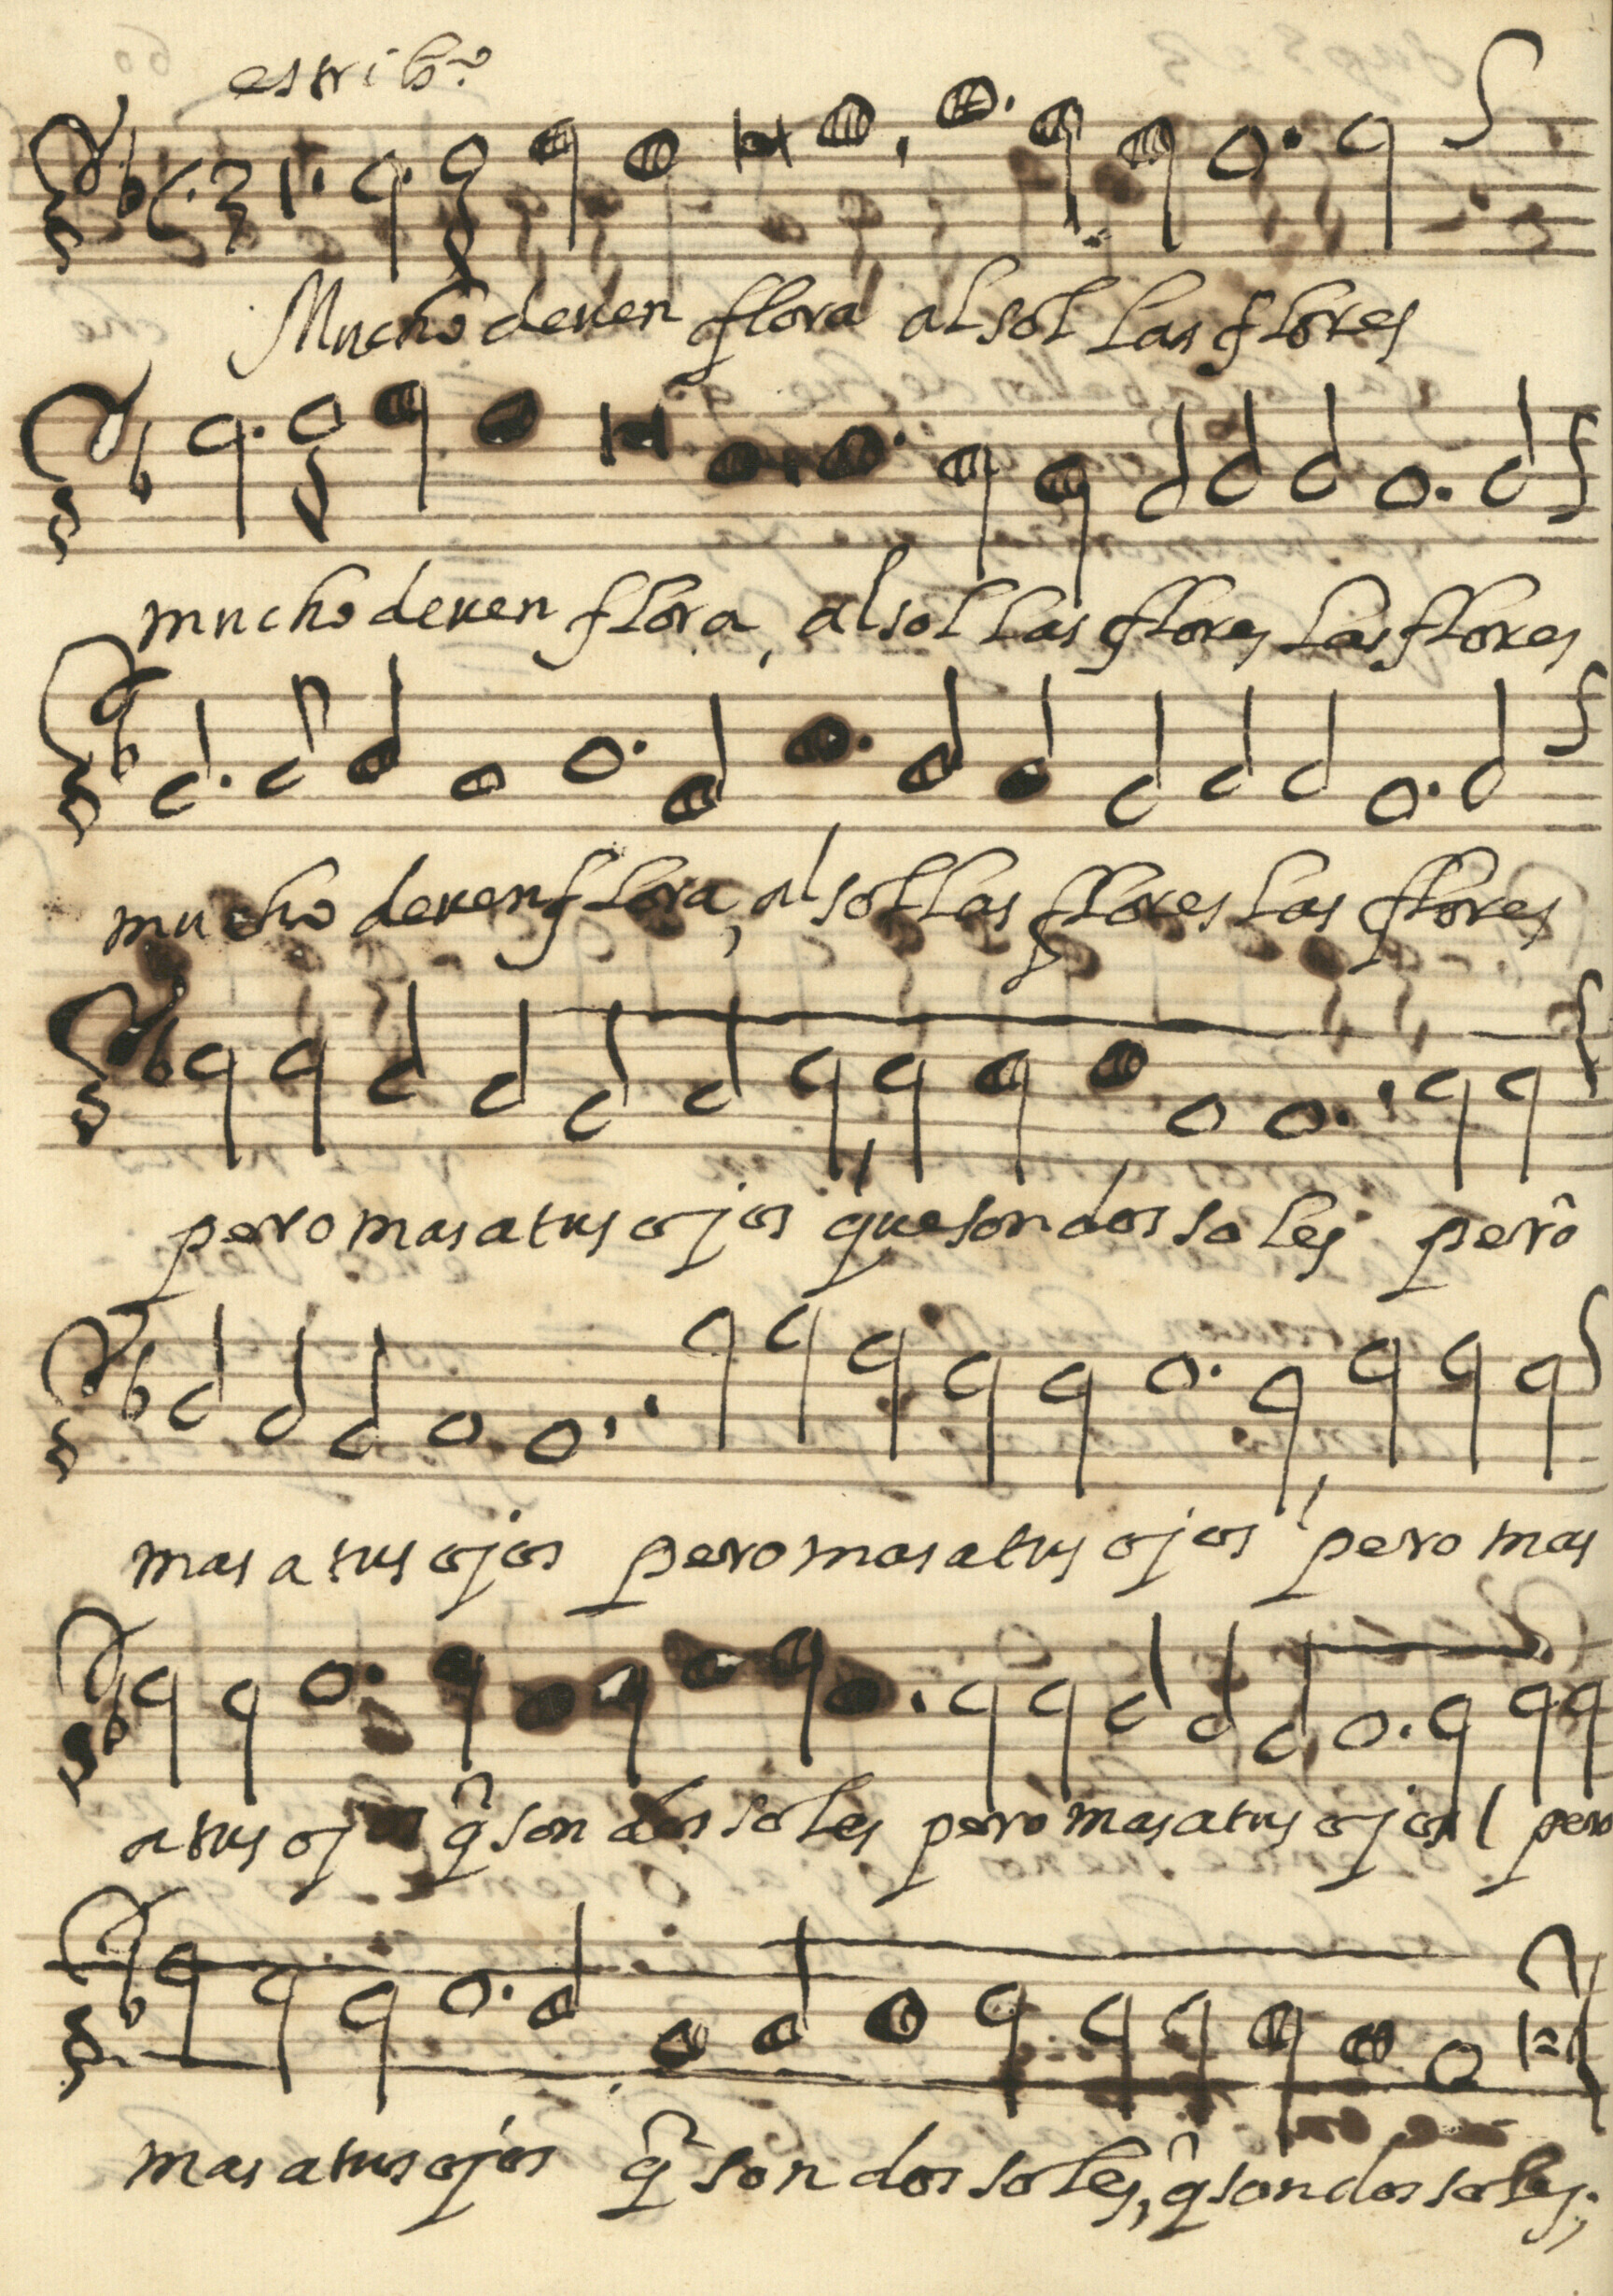 estribº
Mucho deven flora al sol las flores
mucho deven flora, al sol las flores las flores
mucho deven flora, al sol las flores las flores
pero mas a tus ojos que son dos soles pero
mas a tus ojos pero mas a tus ojos pero mas
a tus ojos q̂ son dos soles pero mas a tus ojos pero
mas a tus ojos q̂ son dos soles, q̂ son dos soles;